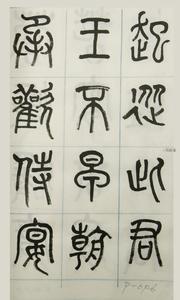 起從此君
王不早朝
承歡侍宴